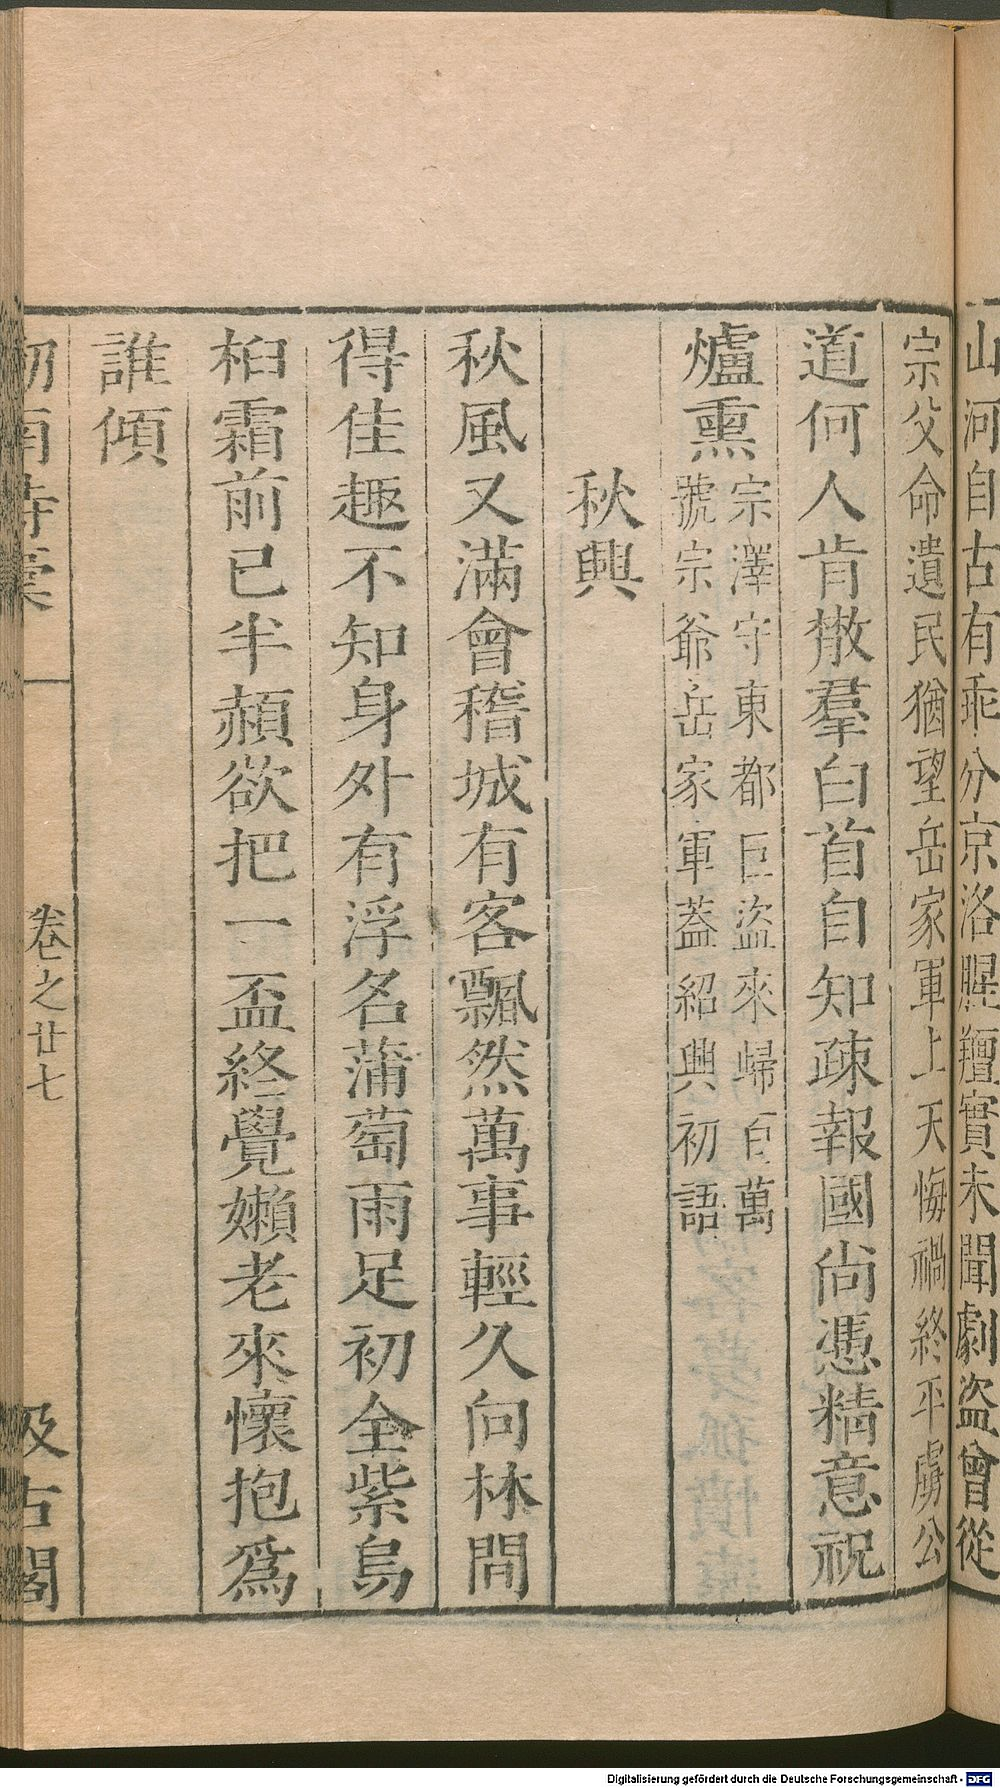 山河自古有乖分京洛腥羶實未聞劇盜曾從
宗父命遺民猶望岳家軍上天悔禍終平虜公
道何人肯散羣白首自知疎報國尚憑精意祝
爐熏宗澤守東都巨盜來歸百萬
號宗爺岳家軍蓋紹興初語
秋興
秋風又滿會稽城有客飄然萬事輕久向林間
得佳趣不知身外有浮名蒲萄雨足初全紫烏
桕霜前已半赬欲把一盃終覺嬾老來懷抱爲
誰傾
劒南詩稾
卷之廿七
汲古閣
Digitalisierung gefördert durch die Deutsche Forschungsgemeinschaft - DFG